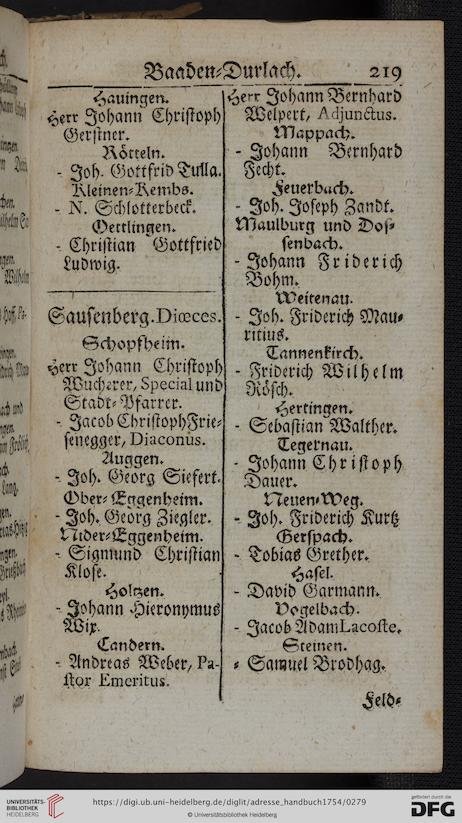 Baaden-Durlach. 219
Hauingen.
Herr Johann Christoph
Gerstner.
Rötteln.
- Joh. Gottfrid Tulla.
Kleinen-Kembs.
- N. Schlotterbeck.
Oettlingen.
- Christian Gottfried
Ludwig.
Sausenberg. Diœces.
Schopfheim.
Herr Johann Christoph
Wucherer, Special und
Stadt-Pfarrer.
- Jacob Christoph Frie-
senegger, Diaconus.
Auggen.
- Joh. Georg Siefert.
Ober-Eggenheim.
- Joh. Georg Ziegler.
Nider-Eggenheim.
- Sigmund Christian
Klose.
Holtzen.
- Johann Hieronymus
Wix.
Candern.
- Andreas Weber, Pa-
stor Emeritus.
Herr Johann Bernhard
Welpert, Adjunctus.
Mappach.
- Johann Bernhard
Fecht.
Feuerbach.
- Joh. Joseph Zandt.
Maulburg und Dos-
senbach.
- Johann Friderich
Bohm.
Weitenau.
- Joh. Friderich Mau-
ritius.
Tannenkirch.
- Friderich Wilhelm
Rösch.
Hertingen.
- Sebastian Walther.
Tegernau.
- Johann Christoph
Dauer.
Neuen-Weg.
- Joh. Friderich Kurtz
Gerspach.
- Tobias Grether.
Hasel.
- David Garmann.
Vogelbach.
- Jacob Adam Lacoste.
Steinen.
- Samuel Brodhag.
Feld-
UNIVERSITÄTS-
BIBLIOTHEK
HEIDELBERG
https://digi.ub.uni-heidelberg.de/diglit/adresse_handbuch1754/0279
© Universitätsbibliothek Heidelberg
gefördert durch die
DFG